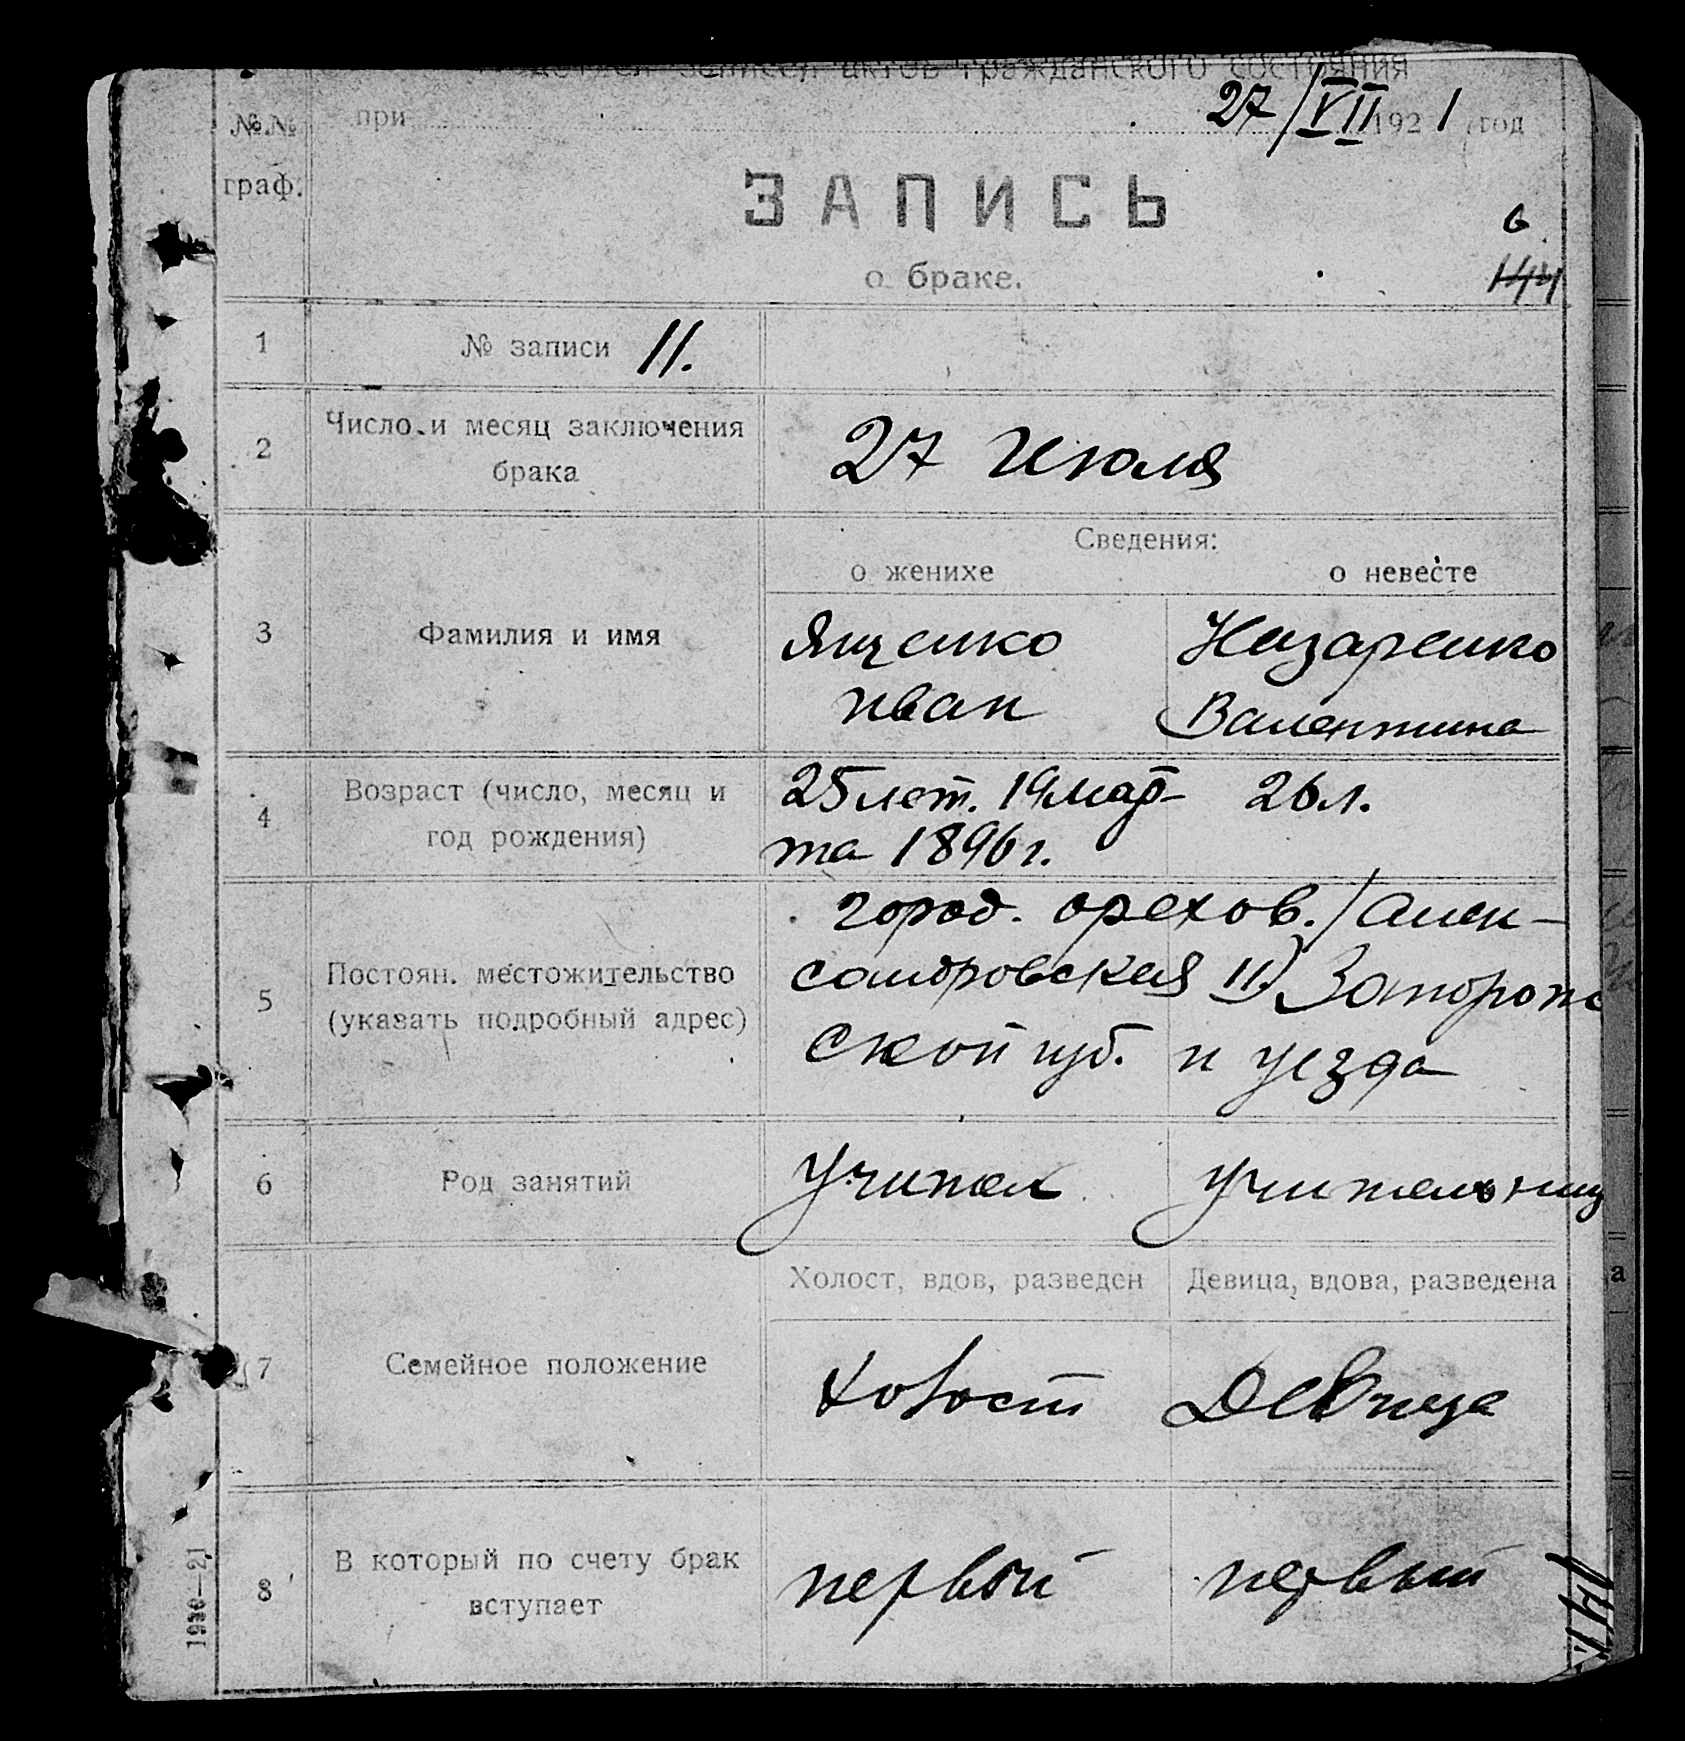 отдел записей актов гражданского состояния
при 27/VII 1921 год
№№ граф.
ЗАПИСЬ
о браке.
6
144
1 № записи 11.
2 Число и месяц заключения
брака
27 Июля
Сведения:
о женихе о невесте
3 Фамилия и имя
Ященко Назаренко
Иван Валентина
4 Возраст (число, месяц и
год рождения)
25 лет. 19 мар- 26 л.
та 1896 г.
город. Орехов. /Алек-
5 Постоян. местожительство
(указать подробный адрес)
сандровская 11) Запорож
ской губ. и уезда
6 Род занятий
Учител Учительниц
Холост, вдов, разведен Девица, вдова, разведена
7 Семейное положение
холост Девица
8 В который по счету брак
вступает
первой первый
144
а